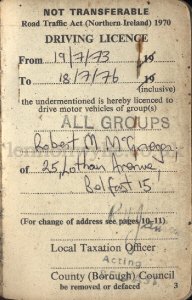 NOT TRANSFERABLE
Road Traffic Act (Northern Ireland) 1970
DRIVING LICENCE
From 19/7/73 19
To 18/7/76 19
(inclusive)
the undermentioned is hereby licenced to
drive motor vehicles of group(s)
ALL GROUPS
Robert M. McGregor
of 25, Lothan Avenue,
Belfast 15
(For change of address see pages 10-11).
Local Taxation Officer
Acting
County (Borough) Council
be removed or defaced 3